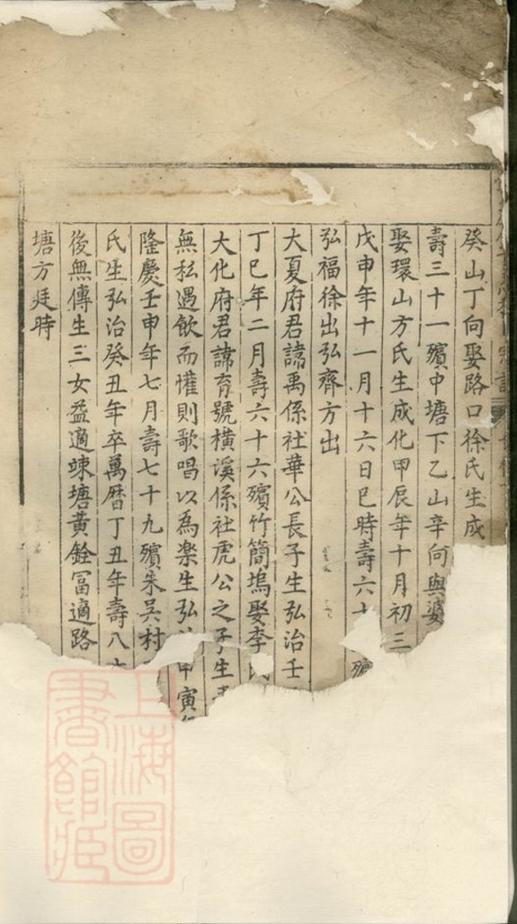 癸山丁向娶路口徐氏生成
壽三十一殯中塘下乙山辛向與婆
娶環山方氏生成化甲辰年十月初三
戊申年十一月十六日巳時壽六十殯
弘福徐出弘齊方出
大夏府君諱禹係社華公長子生弘治壬
丁巳年二月壽六十六殯竹簡塢娶李氏
大化府君諱育號橫溪係社虎公之子生
無私遇飲而懽則歌唱以為楽生弘治甲寅
隆慶壬申年七月壽七十九殯朱吳村
氏生弘治癸丑年卒萬曆丁丑年壽八十
後無傳生三女益適竦塘黃銓冨適路
塘方廷時
上海圖書館藏